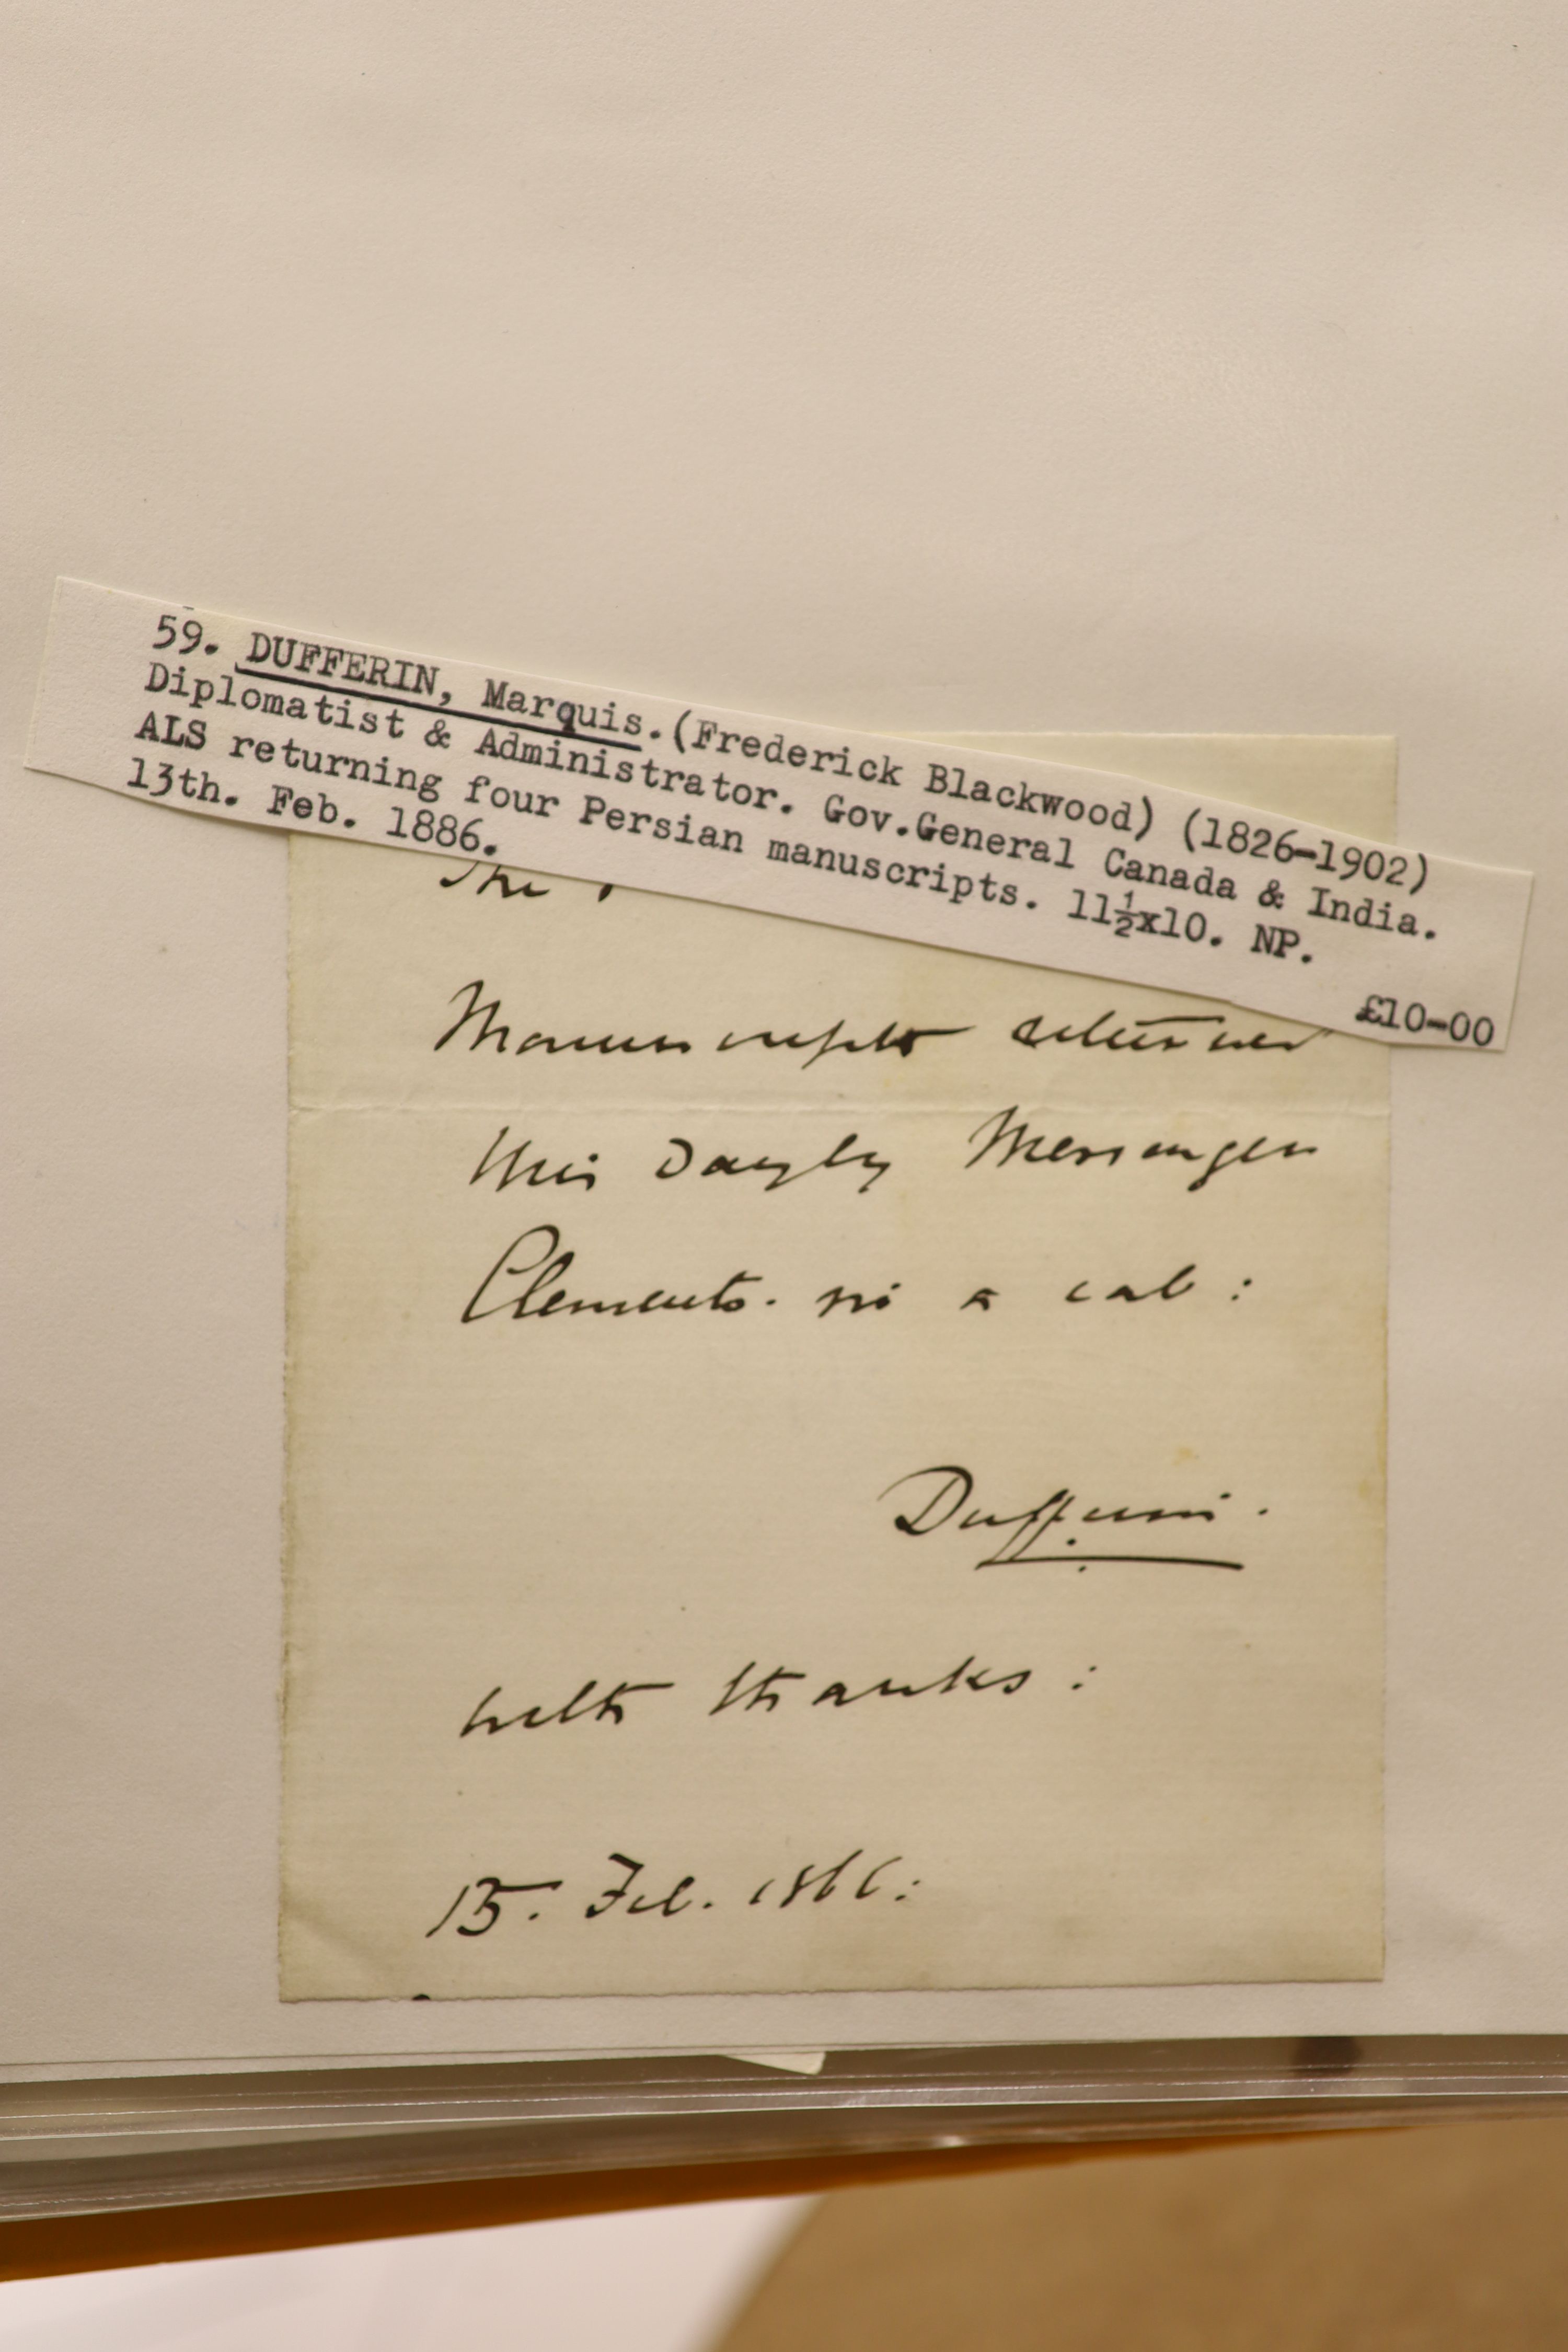 59. DUFFERIN, Marquis.(Frederick Blackwood) (1826-1902)
Diplomatist & Administrator. Gov.General Canada & India.
ALS returning four Persian manuscripts. 11½x10. NP.
13th. Feb. 1886.
£10-00
The
Manuscripts returned
this day by Messenger
Clements. in a cab :
Dufferin.
with thanks :
15. Feb. 1866: